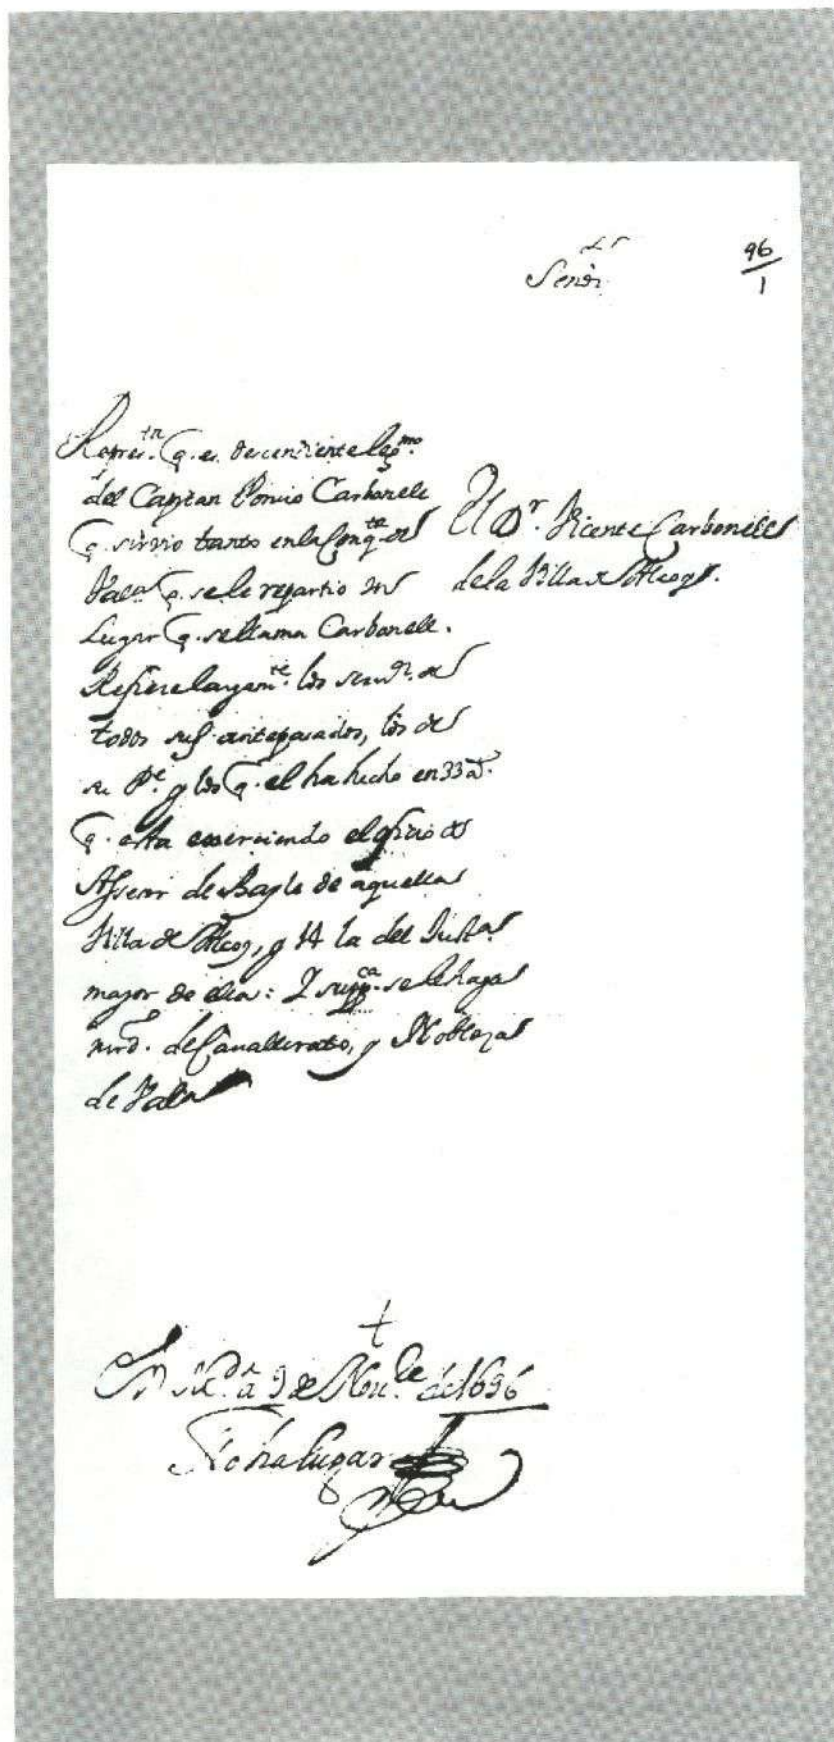 Señor
96
1
Repres.tn q. es descendiente leg.mo
del Capitan Poncio Carbonell
q. sirvio tanto en la Conq.ta de
Val.a q. se le repartio un
Lugar q. se llama Carbonell.
Refiere largam.te los serv.os de
todos sus antepasados, los de
su P.e y los q. el ha hecho en 33 a.s
q. esta exerciendo el oficio de
Assesor de Bayle de aquella
Villa de Alcoy, y 14 la del Justa
mayor de ella: Y supp.ca se le haga
mrd. de Cavallerato, y Nobleza
de Val.a
El D.r Vicente Carbonell
de la Villa de Alcoy.
En M.d a 9 de Nov.re de 1696
No ha lugar